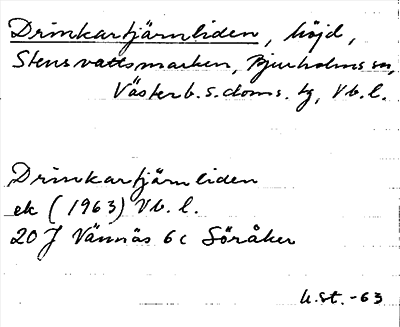 Drinkartjärnliden, höjd,
Stensvattsmarken, Bjurholms sn,
Västerb. s. doms. tg, Vb. l.
Drinkartjärnliden
ek (1963) Vb. l.
20 J Vännäs 6 c Söråker
U.St. -63